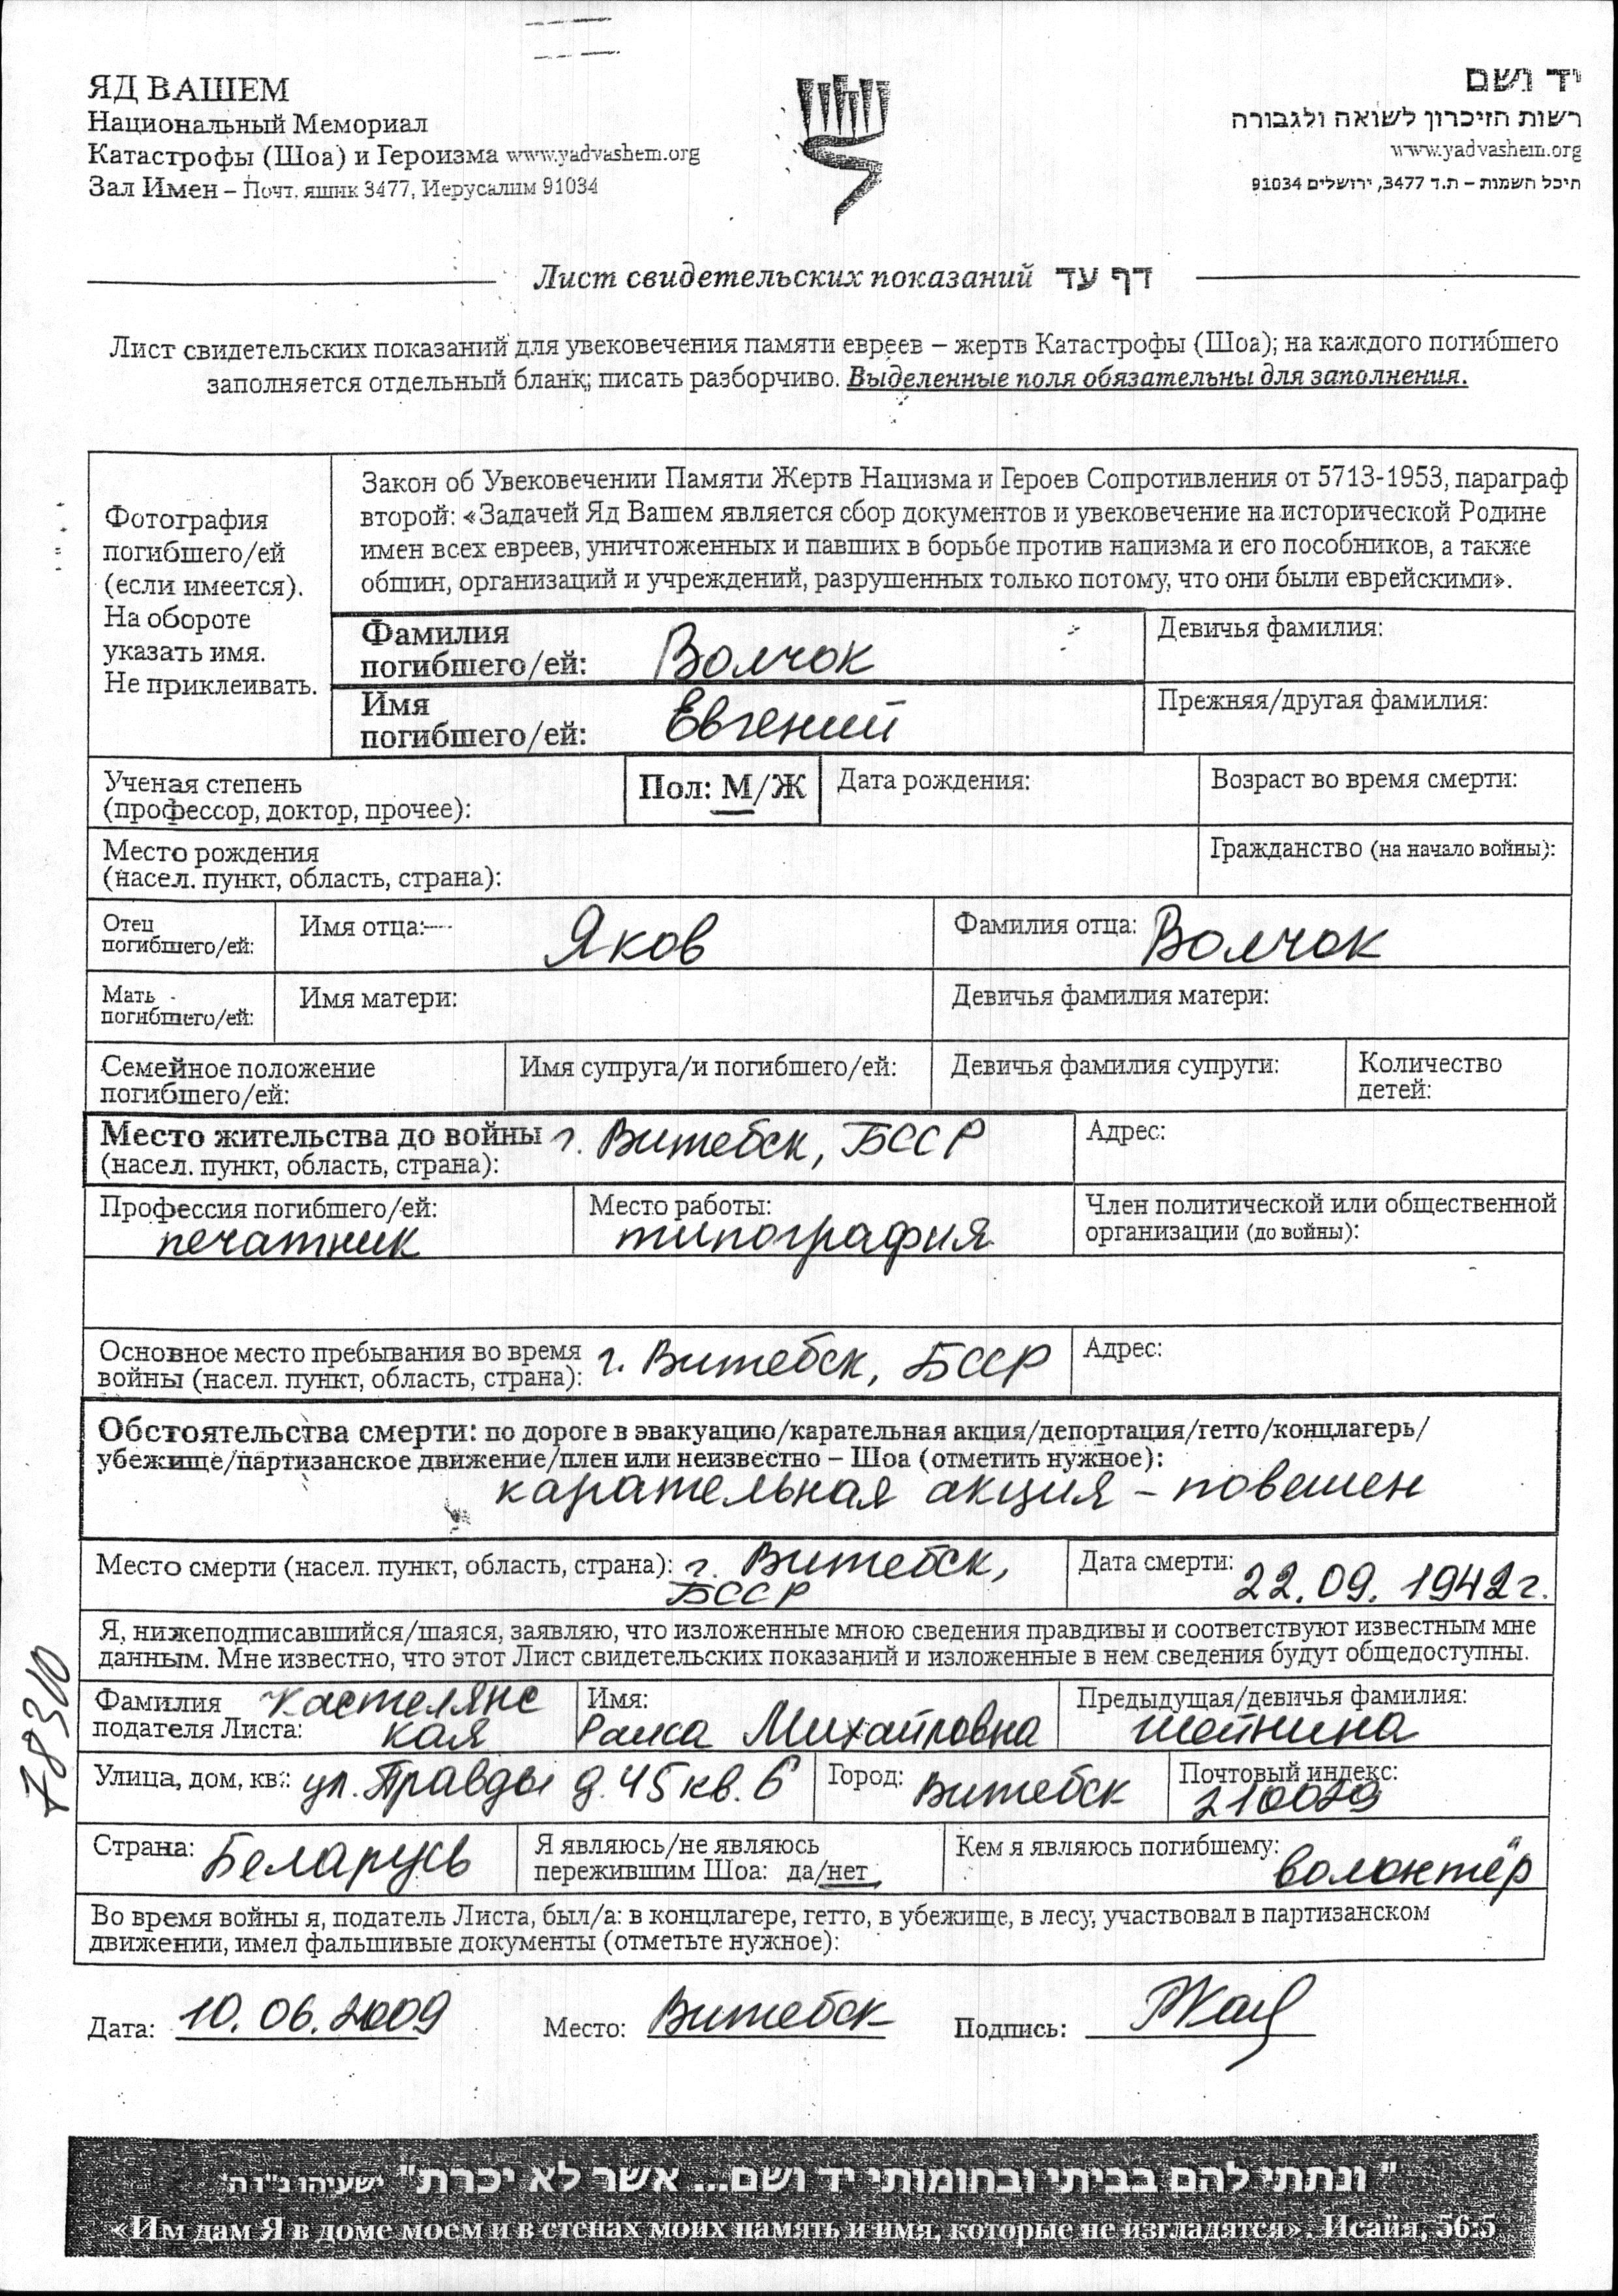 ЯД ВАШЕМ
Национальный Мемориал
Катастрофы (Шоа) и Героизма www.yadvashem.org
Зал Имен – Почт. ящик 3477, Иерусалим 91034
יד ושם
רשות הזיכרון לשואה ולגבורה
www.yadvashem.org
היכל השמות – ת.ד 3477, ירושלים 91034
Лист свидетельских показаний דף עד
Лист свидетельских показаний для увековечения памяти евреев – жертв Катастрофы (Шоа); на каждого погибшего
заполняется отдельный бланк; писать разборчиво. Выделенные поля обязательны для заполнения.
Фотография
погибшего/ей
(если имеется).
На обороте
указать имя.
Не приклеивать.
Закон об Увековечении Памяти Жертв Нацизма и Героев Сопротивления от 5713-1953, параграф
второй: «Задачей Яд Вашем является сбор документов и увековечение на исторической Родине
имен всех евреев, уничтоженных и павших в борьбе против нацизма и его пособников, а также
общин, организаций и учреждений, разрушенных только потому, что они были еврейскими».
Фамилия
погибшего/ей: Волчок
Девичья фамилия:
Имя
погибшего/ей: Евгений
Прежняя/другая фамилия:
Ученая степень
(профессор, доктор, прочее):
Пол: М/Ж
Дата рождения:
Возраст во время смерти:
Место рождения
(насел. пункт, область, страна):
Гражданство (на начало войны):
Отец
погибшего/ей:
Имя отца: Яков
Фамилия отца: Волчок
Мать
погибшего/ей:
Имя матери:
Девичья фамилия матери:
Семейное положение
погибшего/ей:
Имя супруга/и погибшего/ей:
Девичья фамилия супруги:
Количество
детей:
Место жительства до войны г. Витебск, БССР
(насел. пункт, область, страна):
Адрес:
Профессия погибшего/ей:
печатник
Место работы:
типография
Член политической или общественной
организации (до войны):
Основное место пребывания во время
войны (насел. пункт, область, страна): г. Витебск, БССР
Адрес:
Обстоятельства смерти: по дороге в эвакуацию/карательная акция/депортация/гетто/концлагерь/
убежище/партизанское движение/плен или неизвестно – Шоа (отметить нужное):
карательная акция – повешен
Место смерти (насел. пункт, область, страна): г. Витебск,
БССР
Дата смерти: 22.09.1942г.
Я, нижеподписавшийся/шаяся, заявляю, что изложенные мною сведения правдивы и соответствуют известным мне
данным. Мне известно, что этот Лист свидетельских показаний и изложенные в нем сведения будут общедоступны.
78310
Фамилия Кастелянс
подателя Листа: кая
Имя:
Раиса Михайловна
Предыдущая/девичья фамилия:
Шейнина
Улица, дом, кв.: ул. Правды д. 45 кв. 6
Город: Витебск
Почтовый индекс:
210029
Страна: Беларусь
Я являюсь/не являюсь
пережившим Шоа: да/нет
Кем я являюсь погибшему:
волонтёр
Во время войны я, податель Листа, был/а: в концлагере, гетто, в убежище, в лесу, участвовал в партизанском
движении, имел фальшивые документы (отметьте нужное):
Дата: 10.06.2009 Место: Витебск Подпись:
"ונתתי להם בביתי ובחומותי יד ושם... אשר לא יכרת" ישעיהו נ"ו ה'
«Им дам Я в доме моем и в стенах моих память и имя, которые не изгладятся». Исайя, 56:5